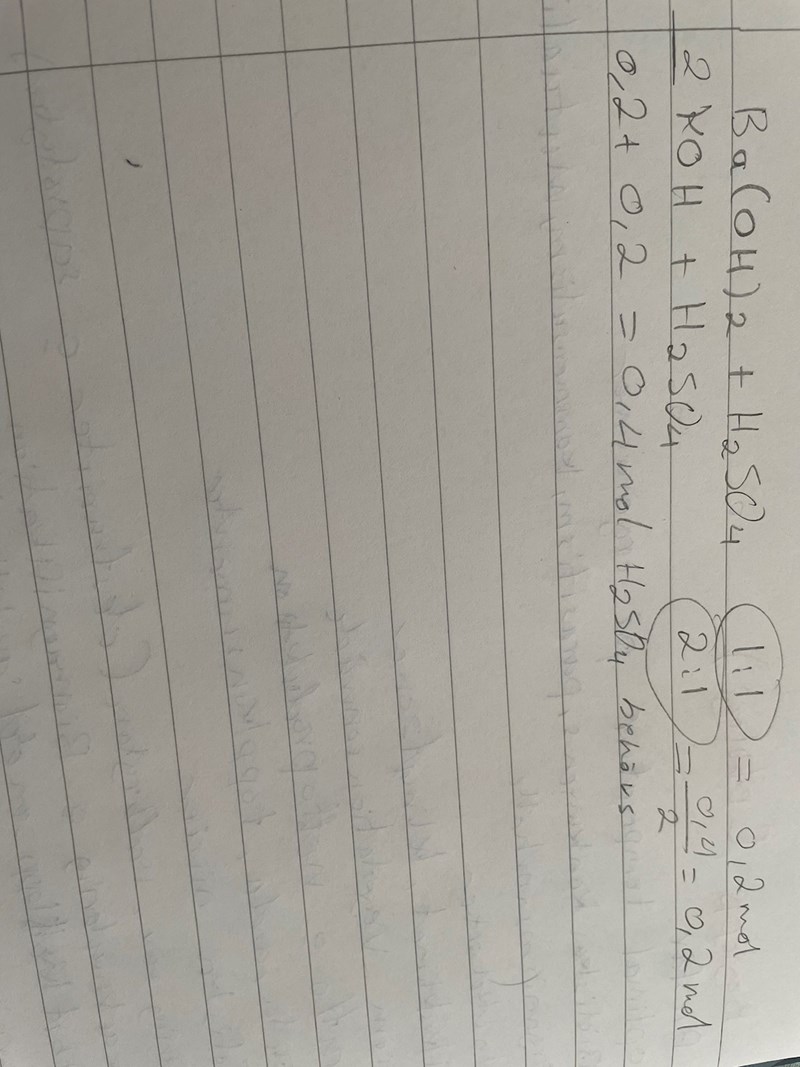 Ba(OH)2 + H2SO4 1:1 = 0,2 mol
2 KOH + H2SO4 2:1 = 0,4/2 = 0,2 mol
0,2 + 0,2 = 0,4 mol H2SO4 behövs